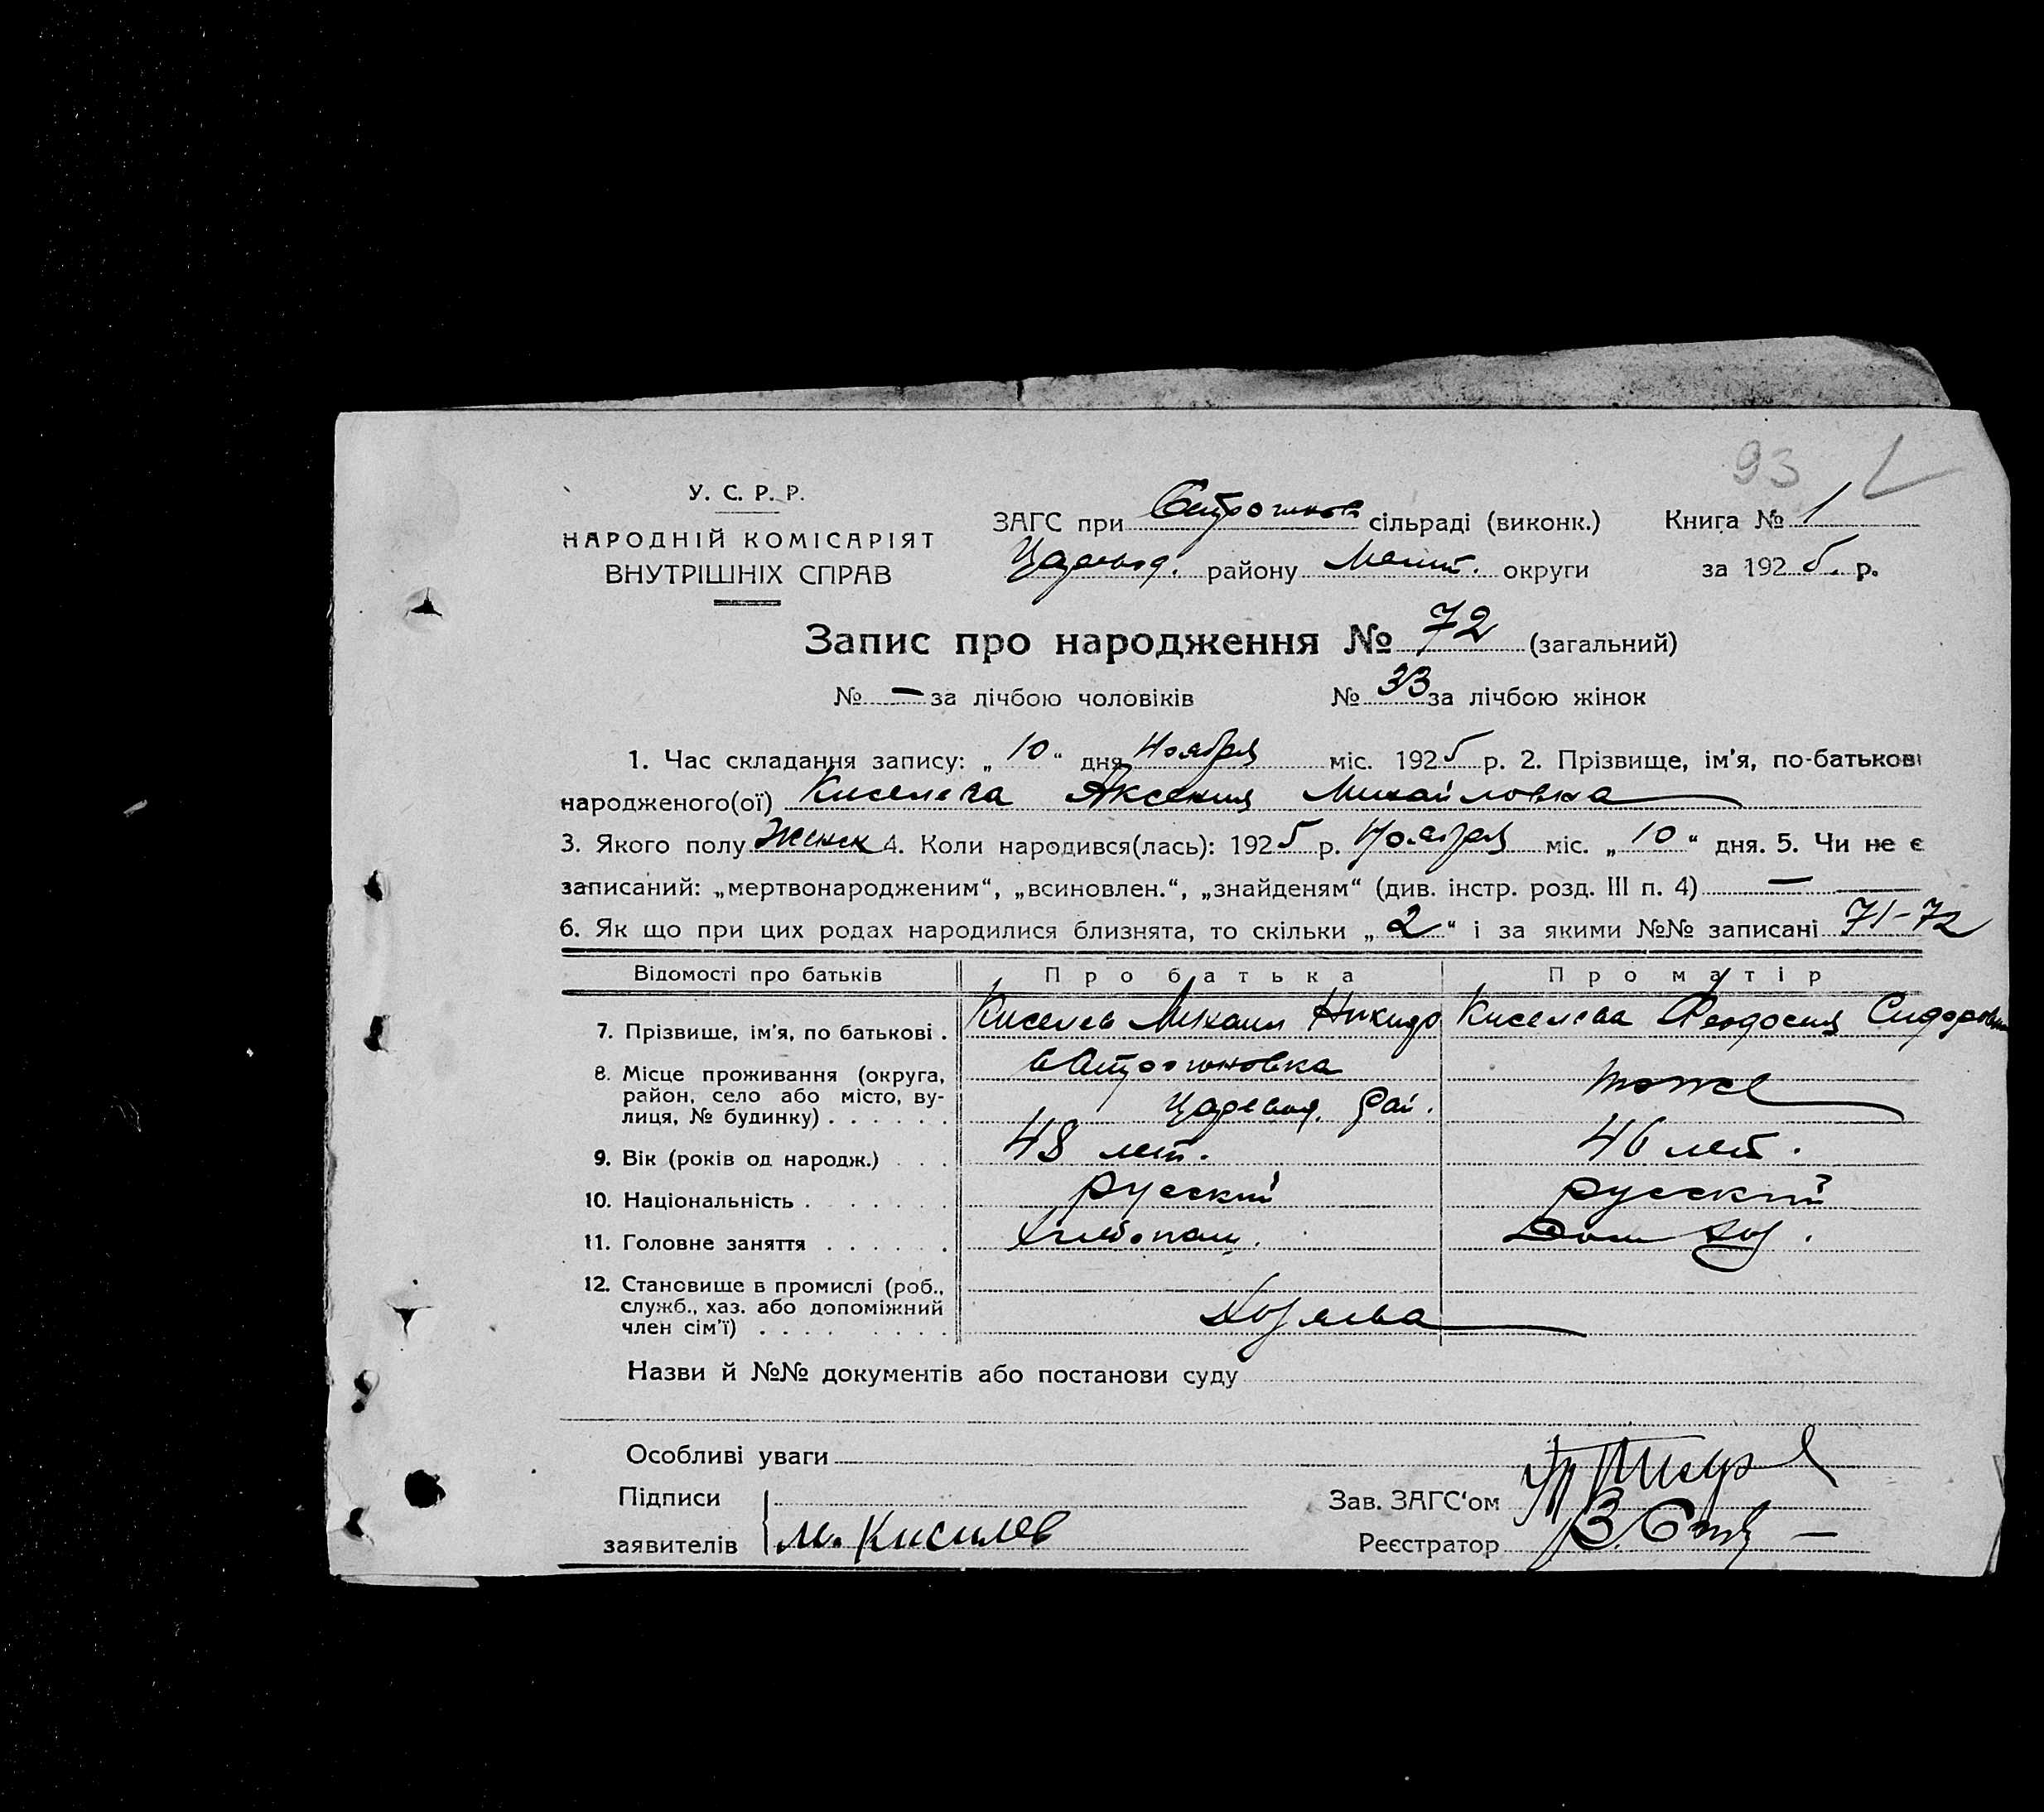 93
У. С. Р. Р.
НАРОДНІЙ КОМІСАРІЯТ
ВНУТРІШНІХ СПРАВ
ЗАГС при Астрогонов сільраді (виконк.) Книга № 1
Царевод. району Мелит. округи за 1925. р.
Запис про народження № 72 (загальний)
№ — за лічбою чоловіків № 33 за лічбою жінок
1. Час складання запису: „ 10 “ дня Ноября міс. 1925 р. 2. Прізвище, ім'я, по-батькові
народженого(ої) Киселева Аксения Михайловна
3. Якого полу Женск 4. Коли народився(лась): 1925 р. Ноября міс. „ 10 “ дня. 5. Чи не є
записаний: „мертвонародженим“, „всиновлен.“, „знайденям“ (див. інстр. розд. III п. 4) —
6. Як що при цих родах народилися близнята, то скільки „ 2 “ і за якими №№ записані 71-72
Відомості про батьків Про батька Про матір
7. Прізвище, ім'я, по батькові . Киселев Михаил Никидо Киселева Феодосия Сидоровн
8. Місце проживання (округа,
район, село або місто, вулиця, № будинку) . . . . . .
Царевод. Рай. тоже
9. Вік (років од народж.) . . . 48 лет. 46 лет.
10. Національність . . . . . . . русский русский
11. Головне заняття . . . . . . Хлебопаш. Дом Хоз.
12. Становище в промислі (роб.,
служб., хаз. або допоміжний
член сім'ї) . . . . . . . . . Хозяева
Назви й №№ документів або постанови суду
Особливі уваги
Підписи
заявителів М. Кисилев
Зав. ЗАГС'ом
Реєстратор